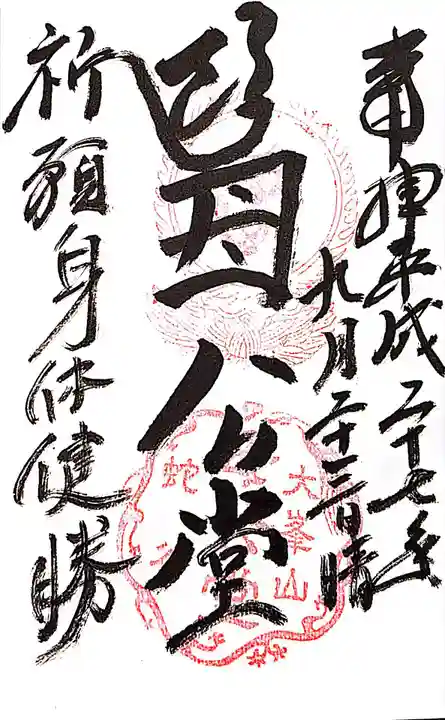 奉拝平成二十七年
九月二十三日晴
母公堂
祈願身体健勝
大峯山